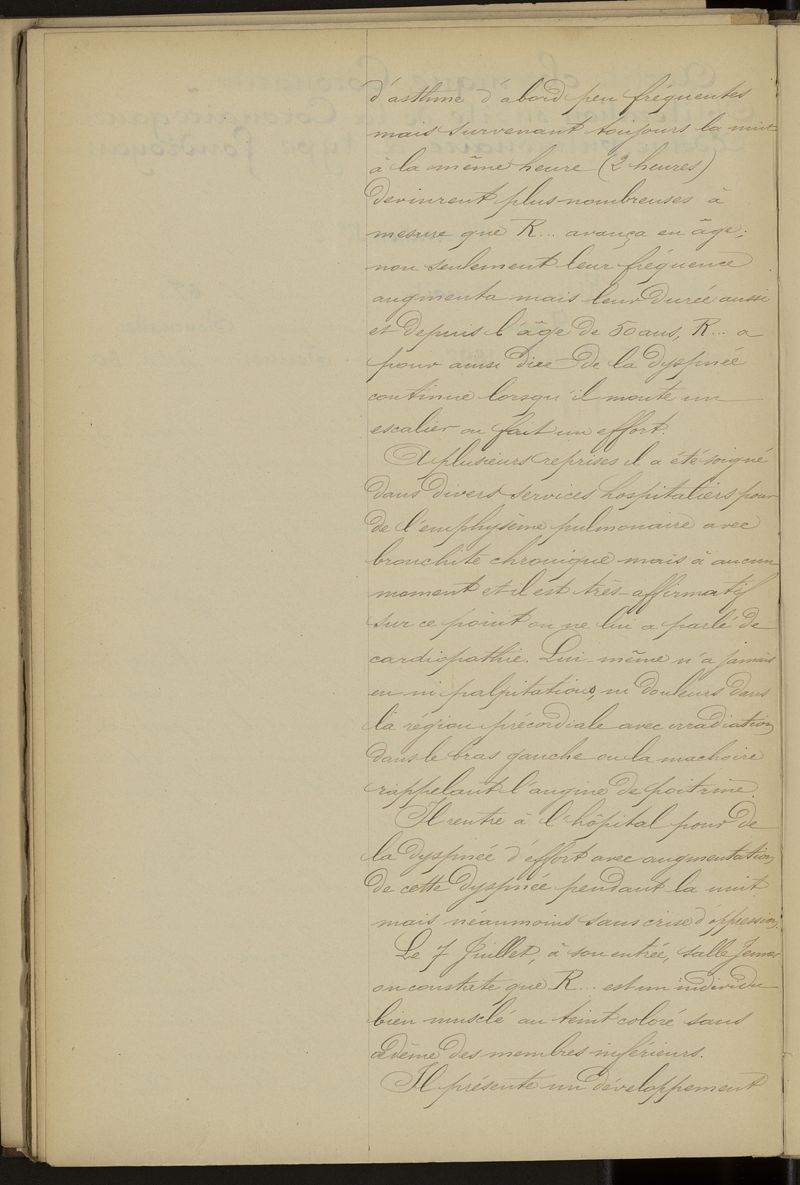 d'asthme d'abord peu fréquentes
mais survenant toujours la nuit
à la même heure (2 heures)
devinrent plus nombreuses à
mesure que R... avança en âge;
non seulement leur fréquence
augmenta mais leur durée aussi
et depuis l'âge de 50 ans, R... a
pour ainsi dire de la dyspnée
continue lorsqu'il monte un
escalier ou fait un effort.
A plusieurs reprises il a été soigné
dans divers services hospitaliers pour
de l'emphysème pulmonaire avec
bronchite chronique mais à aucun
moment et il est très affirmatif
sur ce point on ne lui a parlé de
cardiopathie. Lui-même n'a jamais
eu ni palpitations, ni douleurs dans
la région précordiale avec irradiation
dans le bras gauche ou la machoire
rappelant l'angine de poitrine.
Il rentre à l'hôpital pour de
la dyspnée d'effort avec augmentation
de cette dyspnée pendant la nuit
mais néanmoins sans crise d'oppression.
Le 7 Juillet, à son entrée, salle Jenner
on constate que R... est un individu
bien musclé au teint coloré sans
œdème des membres inférieurs.
Il présente un développement